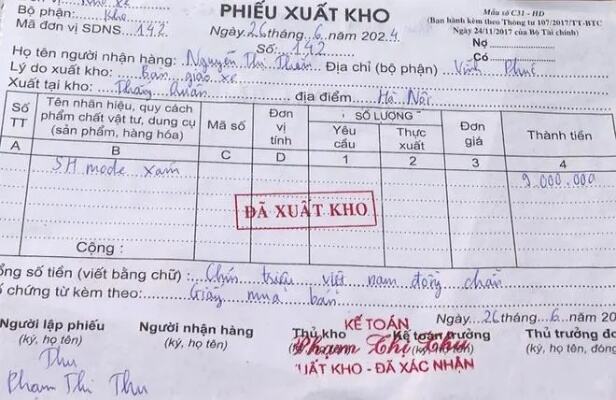 PHIẾU XUẤT KHO
Mẫu số C31 - HD
(Ban hành kèm theo Thông tư 107/2017/TT-BTC
Ngày 24/11/2017 của Bộ Tài chính)
Bộ phận: Kho
Mã đơn vị SDNS. 142
Ngày 26 tháng 6 năm 2024
Số: 142
Nợ
Có
Họ tên người nhận hàng: Nguyễn Thị Địa chỉ (bộ phận) Vĩnh Phúc
Lý do xuất kho: Bàn giao xe
Xuất tại kho: địa điểm Hà Nội
Số TT Tên nhãn hiệu, quy cách phẩm chất vật tư, dụng cụ (sản phẩm, hàng hóa) Mã số Đơn vị tính SỐ LƯỢNG Yêu cầu Thực xuất Đơn giá Thành tiền
A B C D 1 2 3 4
SH mode xám 9.000.000
ĐÃ XUẤT KHO
Cộng :
ổng số tiền (viết bằng chữ) : Chín triệu việt nam đồng chẵn
ố chứng từ kèm theo: Giấy mua bán
Ngày 26 tháng 6 năm 20
Người lập phiếu Người nhận hàng Thủ kho Kế toán trưởng Thủ trưởng đơ
(ký, họ tên) (ký, họ tên) (ký, họ tên) (ký, họ tên, đóng
KẾ TOÁN
Phạm Thị Thu
XUẤT KHO - ĐÃ XÁC NHẬN
Thu
Phạm Thị Thu